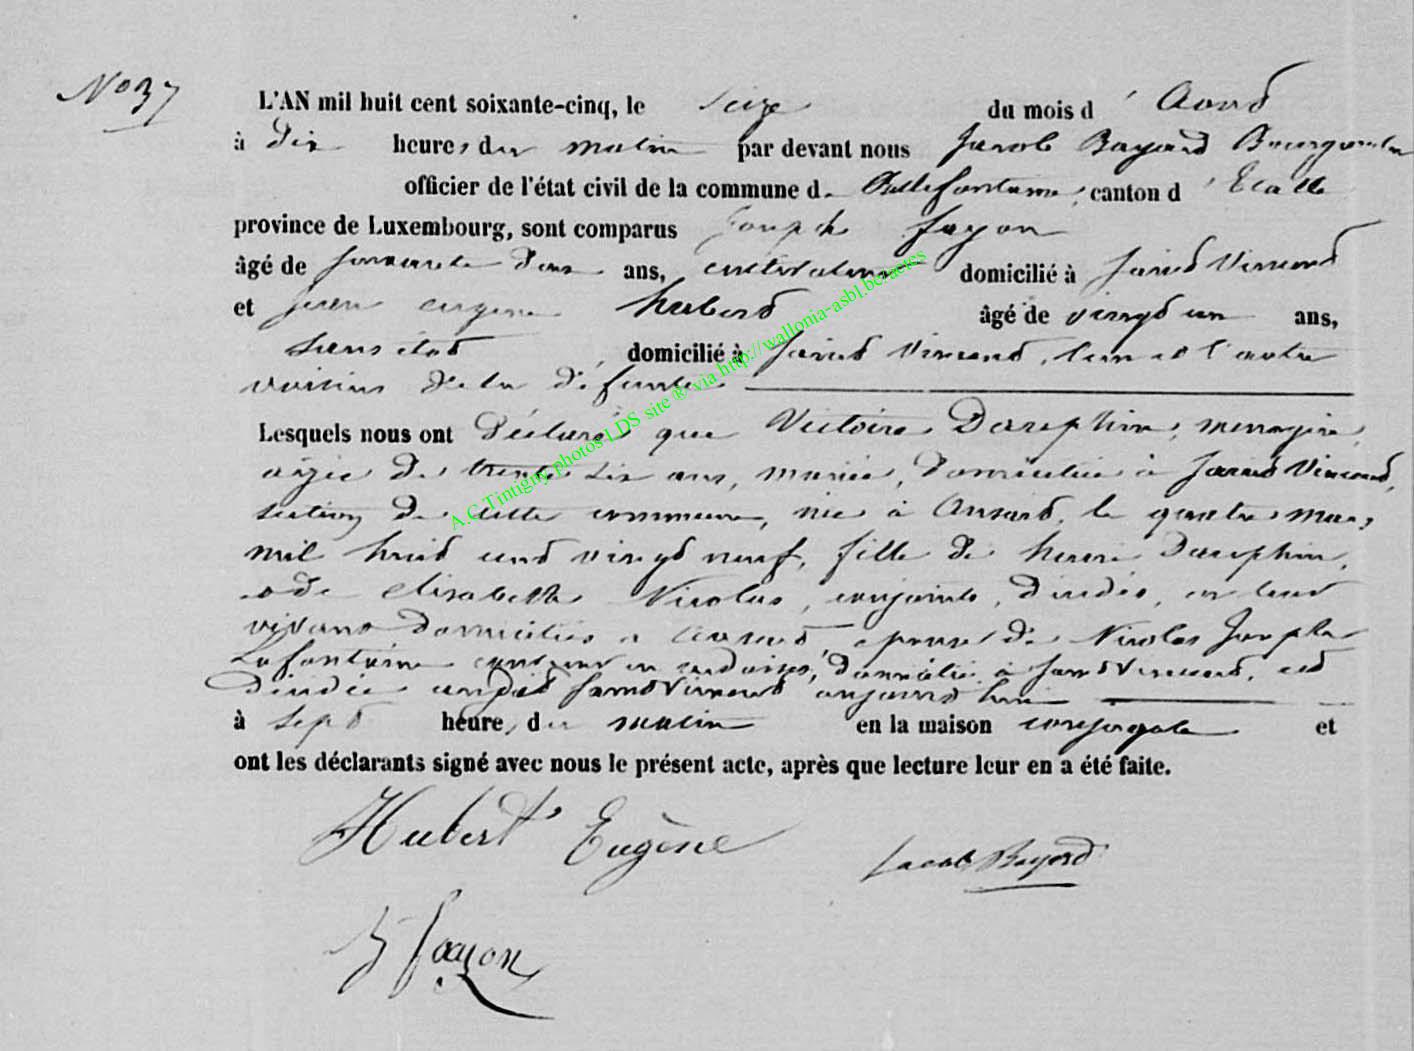 N° 37
L'AN mil huit cent soixante-cinq, le seize du mois d'Août
à dix heures du matin par devant nous Jacob Bayard Bourgmestre
officier de l'état civil de la commune de Bellefontaine, canton d'Etalle
province de Luxembourg, sont comparus Joseph Fayon
âgé de ans, cultivateur domicilié à Saint Vincent
et Jean eugène hubert âgé de vingt un ans,
sans état domicilié à Saint Vincent, l'un et l'autre
voisins de la défunte
Lesquels nous ont déclaré que Victoire Dauphin, ménagère,
agée de trente six ans, mariée, domiciliée à Saint Vincent,
section de cette commune, née à Ansart, le quatre mars
mil huit cent vingt neuf, fille de henri Dauphin,
et de elisabeth Nicolas, conjoints, décédés, en leur
vivant domiciliés à Ansart, épouse de Nicolas Joseph
Lafontaine couvreur en ardoises, domicilié à Saint Vincent, est
décédée audit Saint Vincent aujourd'hui
à sept heures du matin en la maison conjugale et
ont les déclarants signé avec nous le présent acte, après que lecture leur en a été faite.
Hubert Eugène
Jacob Bayard
J Fayon
A.G Tintigny photos LDS site ® via http://wallonia-asbl.be/actes